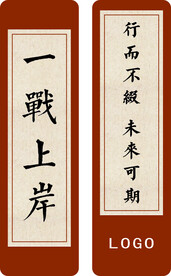 一戰上岸
行而不綴 未來可期
LOGO